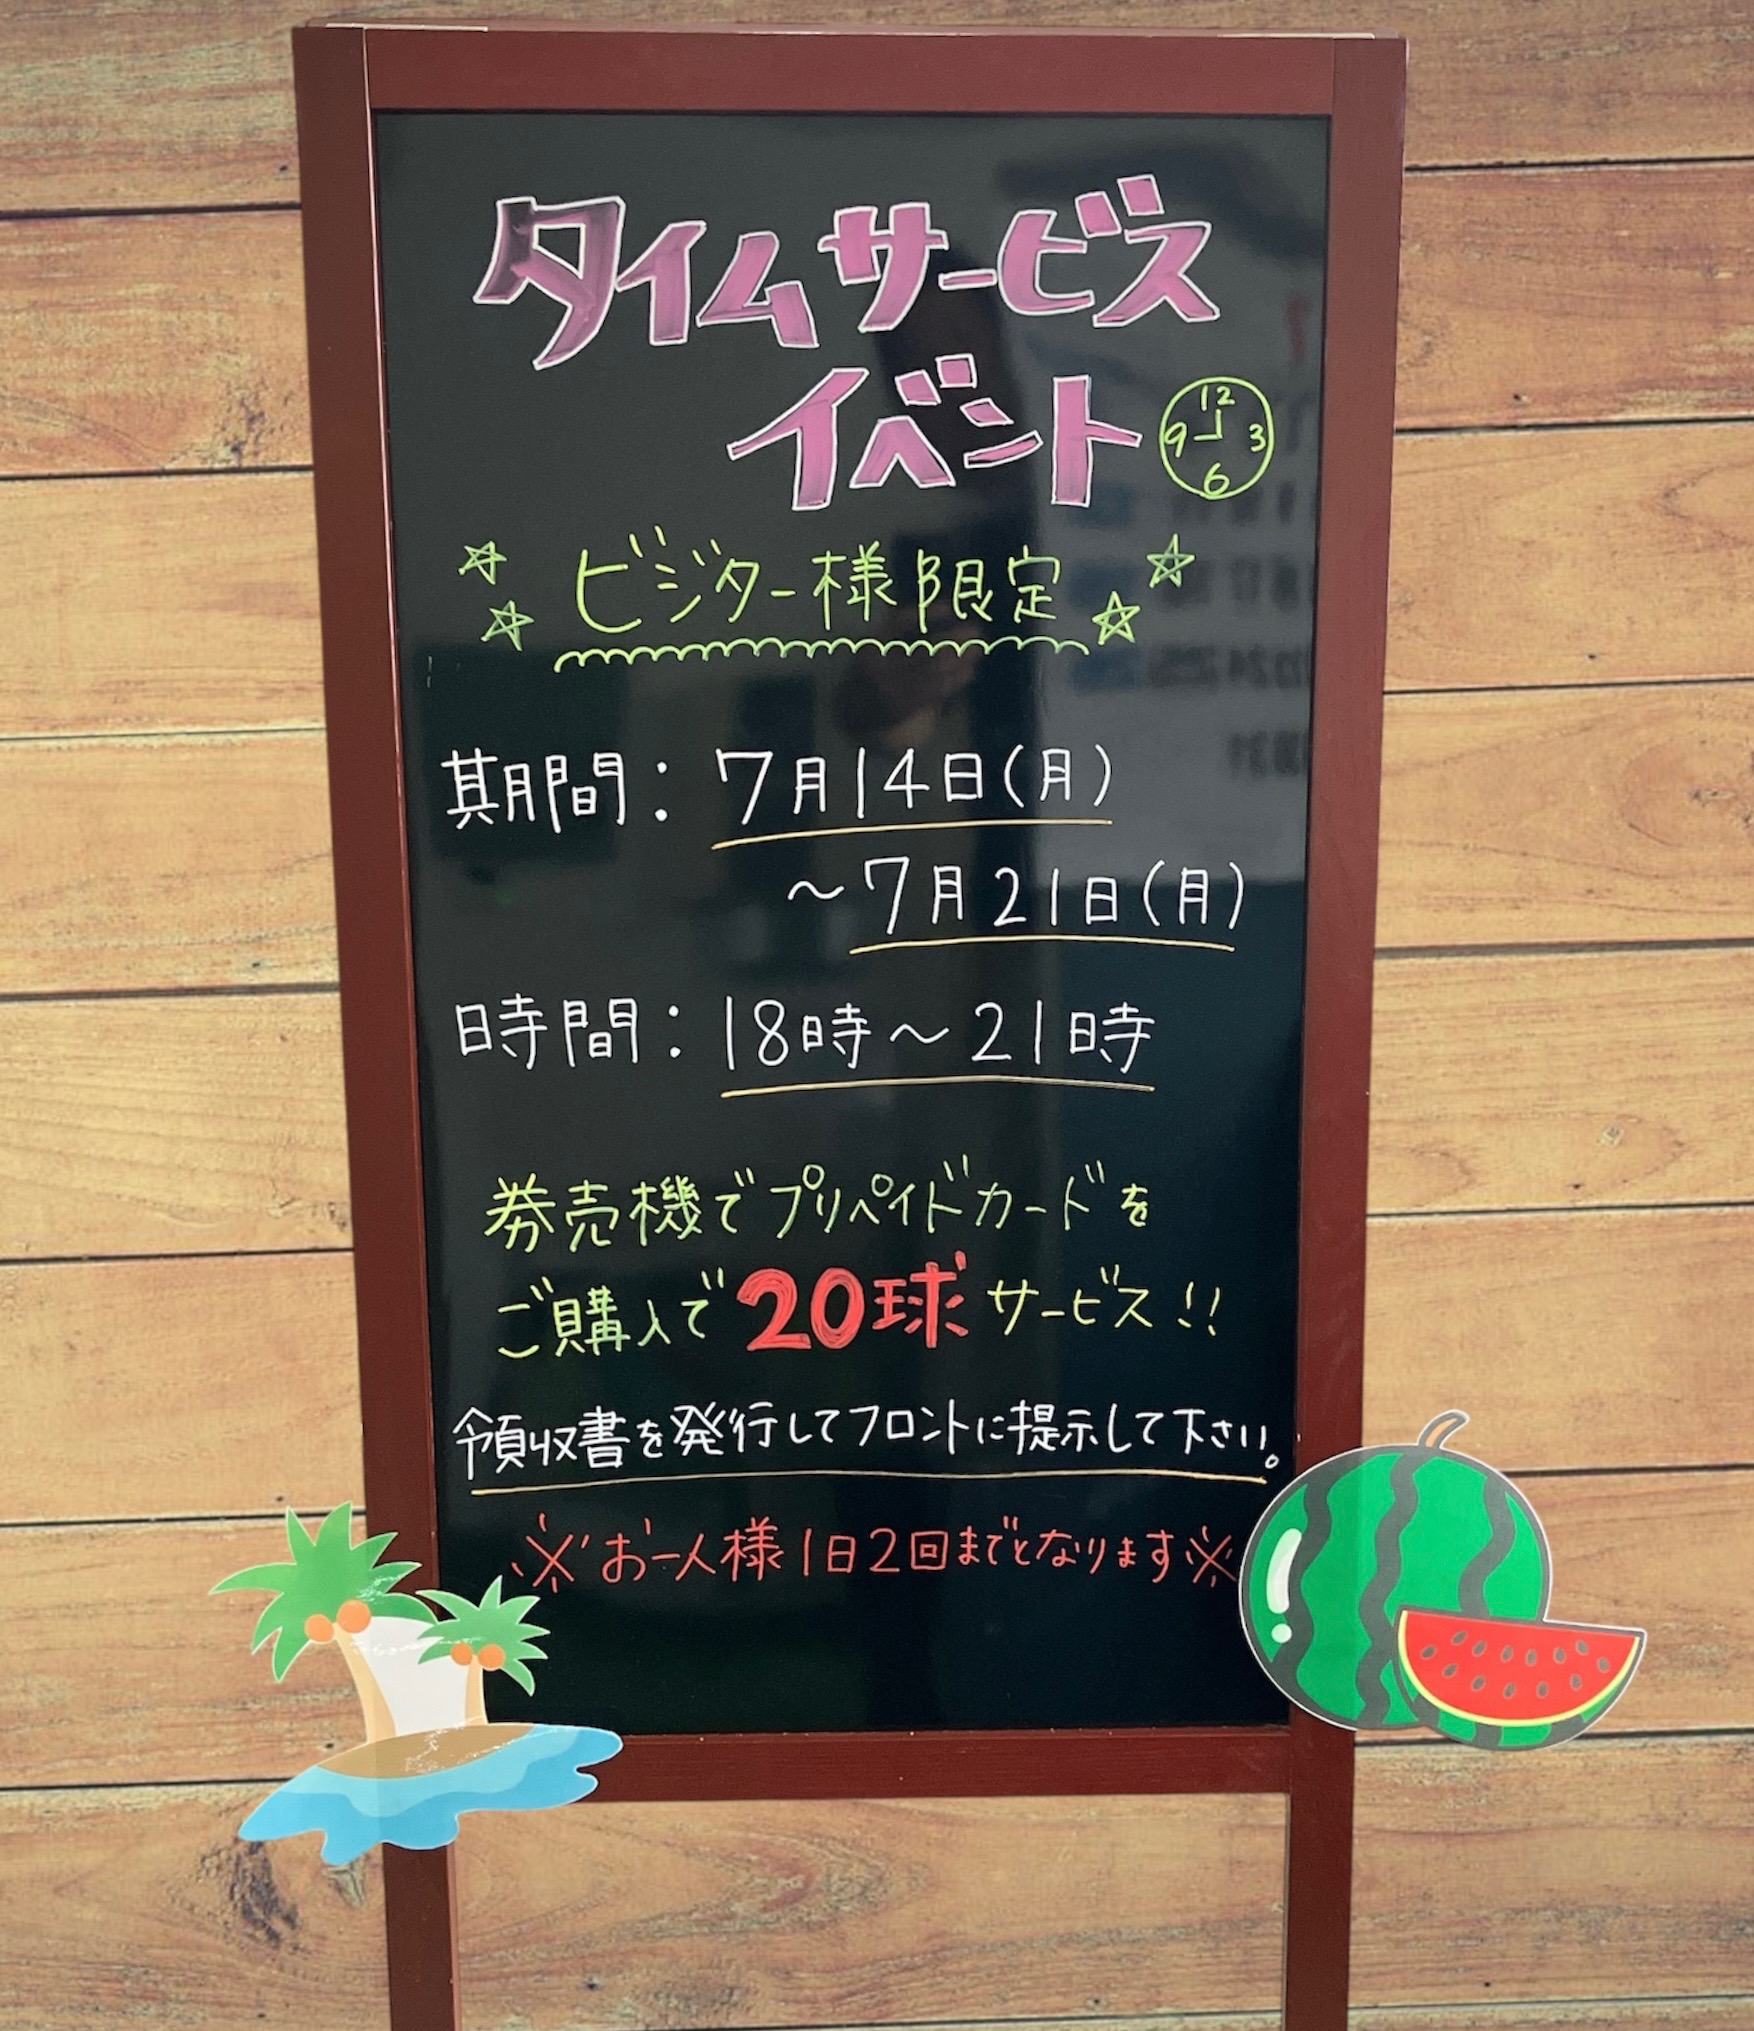 タイムサービス
イベント
12
9 3
6
ビジター様限定
期間：7月14日(月)
～7月21日(月)
時間：18時～21時
券売機でプリペイドカードを
ご購入で20球サービス!!
領収書を発行してフロントに提示して下さい。
※お一人様1日2回までとなります※